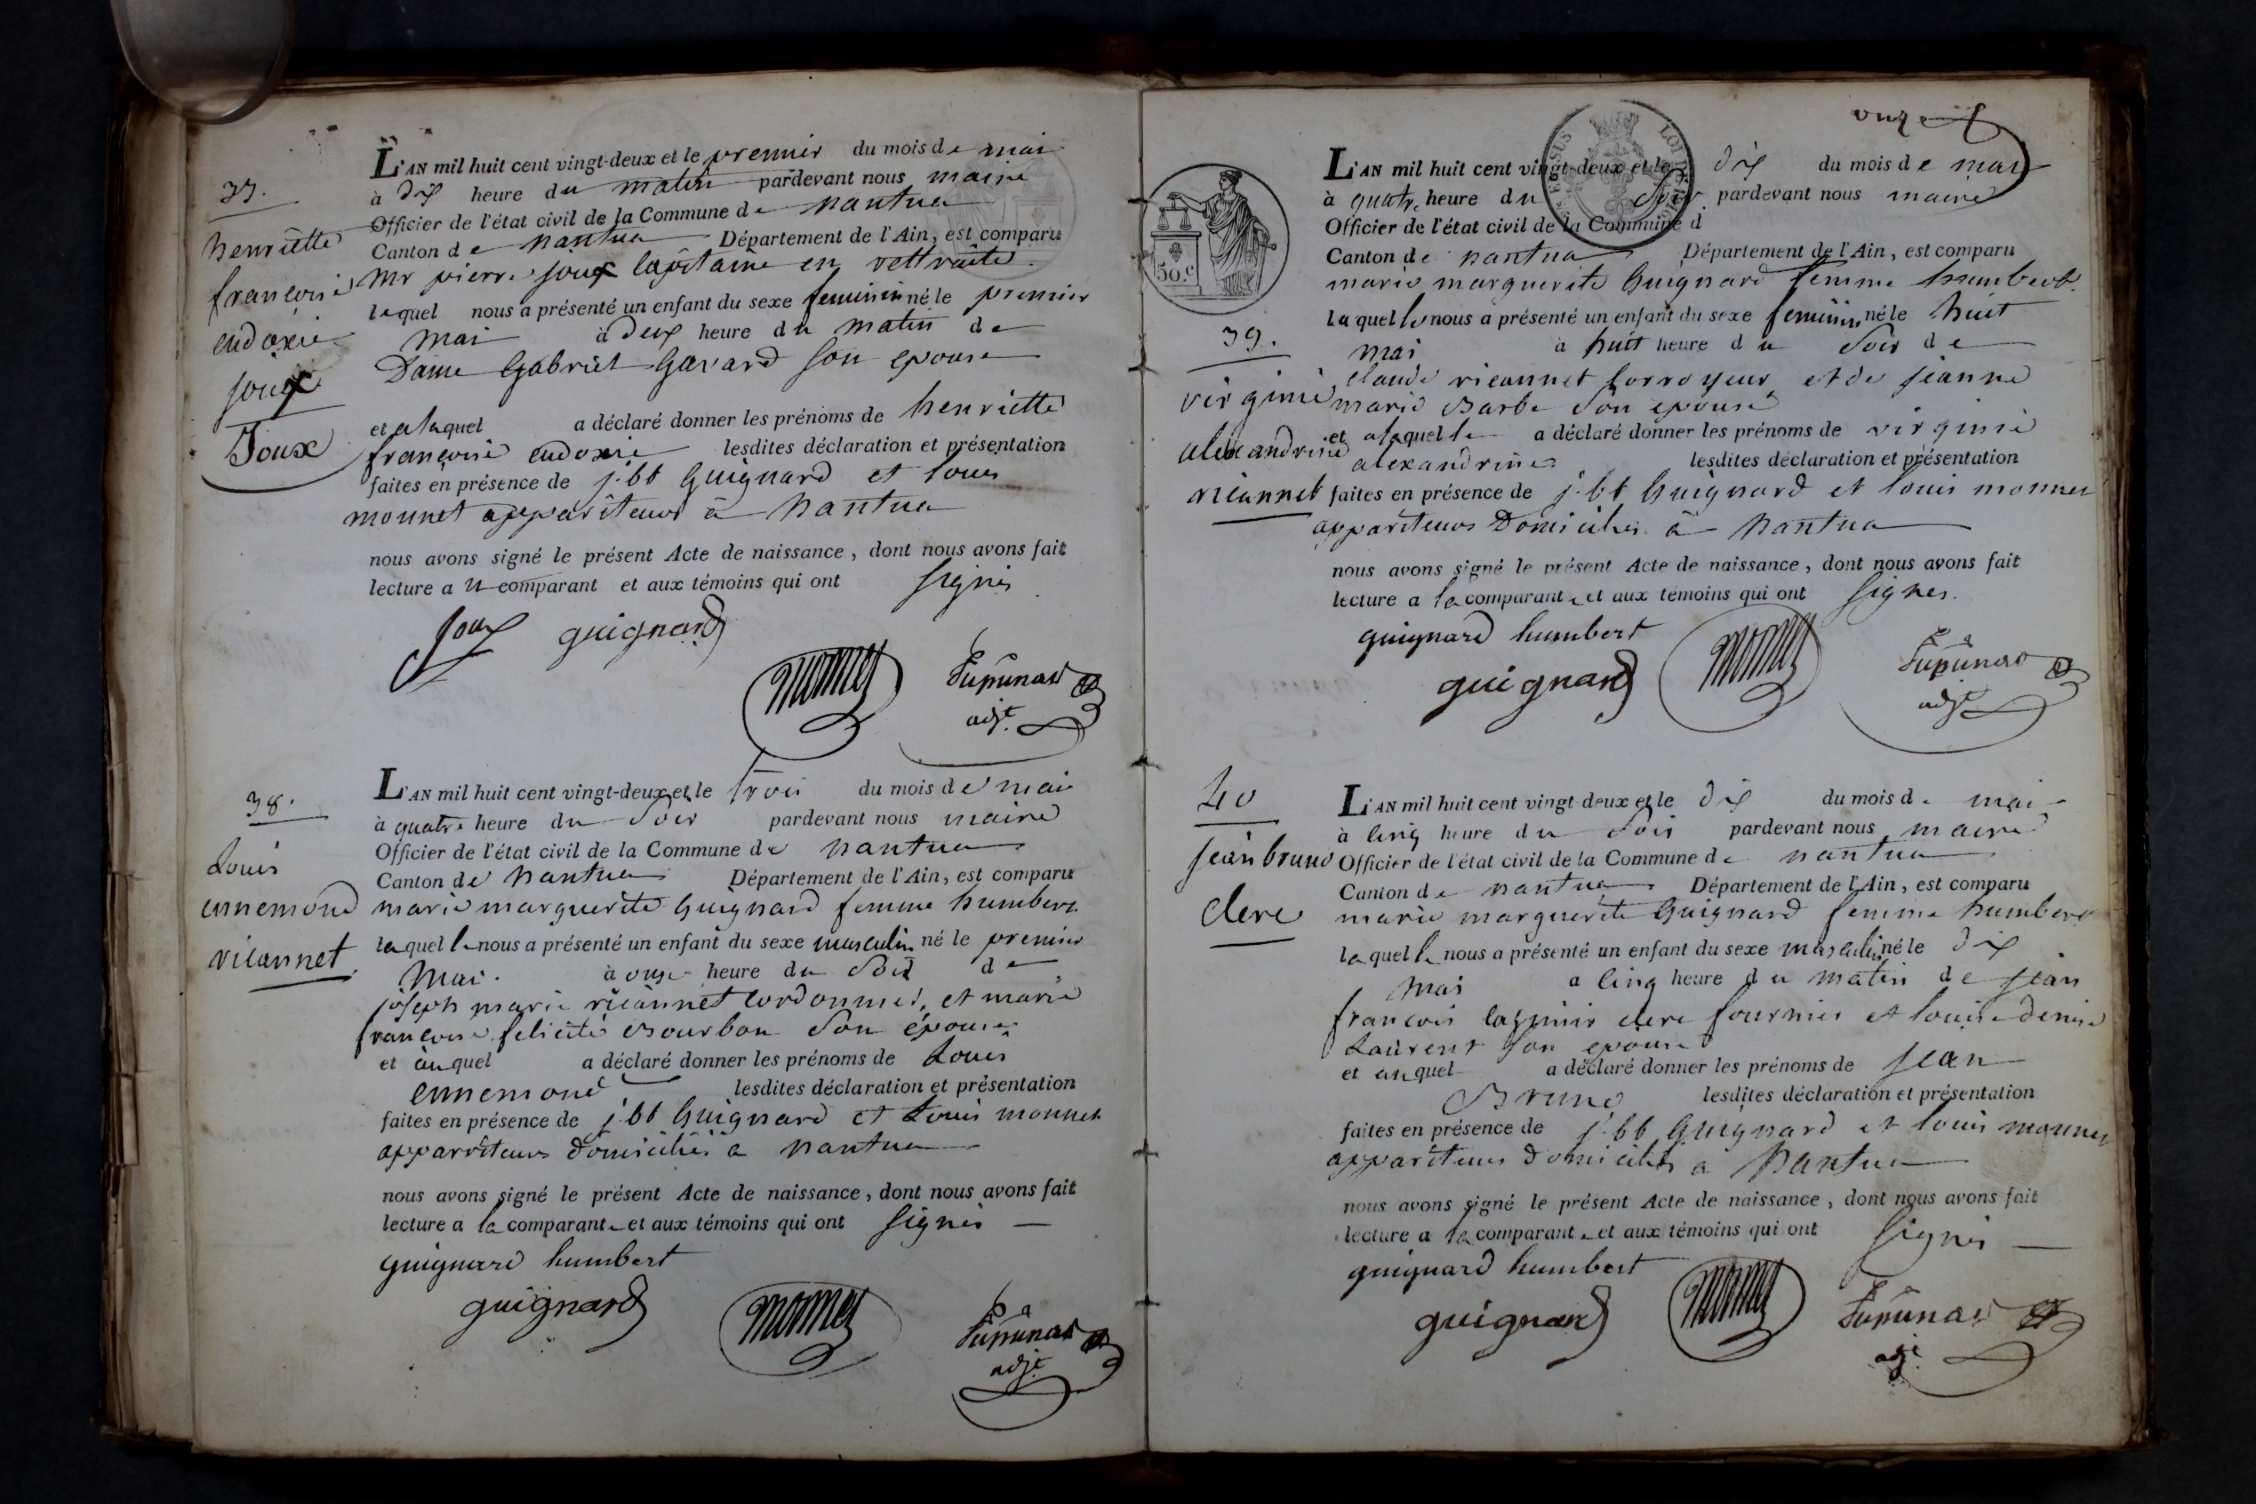 37.
henriette
françoise
eudoxie
joux
Joux
L'AN mil huit cent vingt-deux et le premier du mois de mai
à dix heure du matin pardevant nous maire
Officier de l'état civil de la Commune de nantua
Canton de nantua Département de l'Ain, est comparu
Mr pierre joux Capitaine en rettraite
lequel nous a présenté un enfant du sexe feminin né le premier
mai à deux heure du matin de
Dame Gabriel Gavard son epouse
et alaquel a déclaré donner les prénoms de henriette
françoise eudoxie lesdites déclaration et présentation
faites en présence de j. bt Guignard et louis
monnet apparîteurs à nantua
nous avons signé le présent Acte de naissance, dont nous avons fait
lecture a u comparant et aux témoins qui ont signés
Joux guignard
monnet
adjt.
38.
Louis
ennemond
vicannet
L'AN mil huit cent vingt-deux et le trois du mois de mai
à quatre heure du soir pardevant nous maire
Officier de l'état civil de la Commune de nantua
Canton de nantua Département de l'Ain, est comparu
marie marguerite Guignard femme humbert
laquelle nous a présenté un enfant du sexe masculin né le premier
mai. à onze heure du soir de
joseph marie vicannet Cordonnier, et marie
françoise felicité Bourbon son épouse
et auquel a déclaré donner les prénoms de Louis
ennemond lesdites déclaration et présentation
faites en présence de j. bt Guignard et Louis monnet
apparîteurs domiciliés a nantua
nous avons signé le présent Acte de naissance, dont nous avons fait
lecture a la comparante et aux témoins qui ont signés
guignard humbert
guignard monnet
adjt.
onze
30.c
39.
virginie
alexandrine
vicannet
L'AN mil huit cent vingt-deux et le dix du mois de mai
à quatre heure du soir pardevant nous maire
Officier de l'état civil de la Commune d
Canton de nantua Département de l'Ain, est comparu
marie marguerite Guignard femme humbert
laquelle nous a présenté un enfant du sexe feminin né le huit
mai à huit heure du soir de
claude vicannet Corroyeur et de jeanne
marie Barbe son epouse
et alaquelle a déclaré donner les prénoms de virginie
alexandrine lesdites déclaration et présentation
faites en présence de j. bt Guignard et louis monnet
apparîteurs Domiciliés à nantua
nous avons signé le présent Acte de naissance, dont nous avons fait
lecture a la comparante et aux témoins qui ont signés.
guignard humbert
guignard monnet
adjt
40
jean bruno
clerc
L'AN mil huit cent vingt-deux et le dix du mois de mai
à cinq heure du soir pardevant nous maire
Officier de l'état civil de la Commune de nantua
Canton de nantua Département de l'Ain, est comparu
marie marguerite Guignard femme humbert
laquelle nous a présenté un enfant du sexe masculin né le dix
mai a cinq heure du matin de jean
françois casimir clerc fournier et louise denise
Laurent son epouse
et auquel a déclaré donner les prénoms de jean
Bruno lesdites déclaration et présentation
faites en présence de j. bt Guignard et louis monnet
apparîteurs domiciliés a nantua
nous avons signé le présent Acte de naissance, dont nous avons fait
lecture a la comparante et aux témoins qui ont signés
guignard humbert
guignard monnet
adjt.